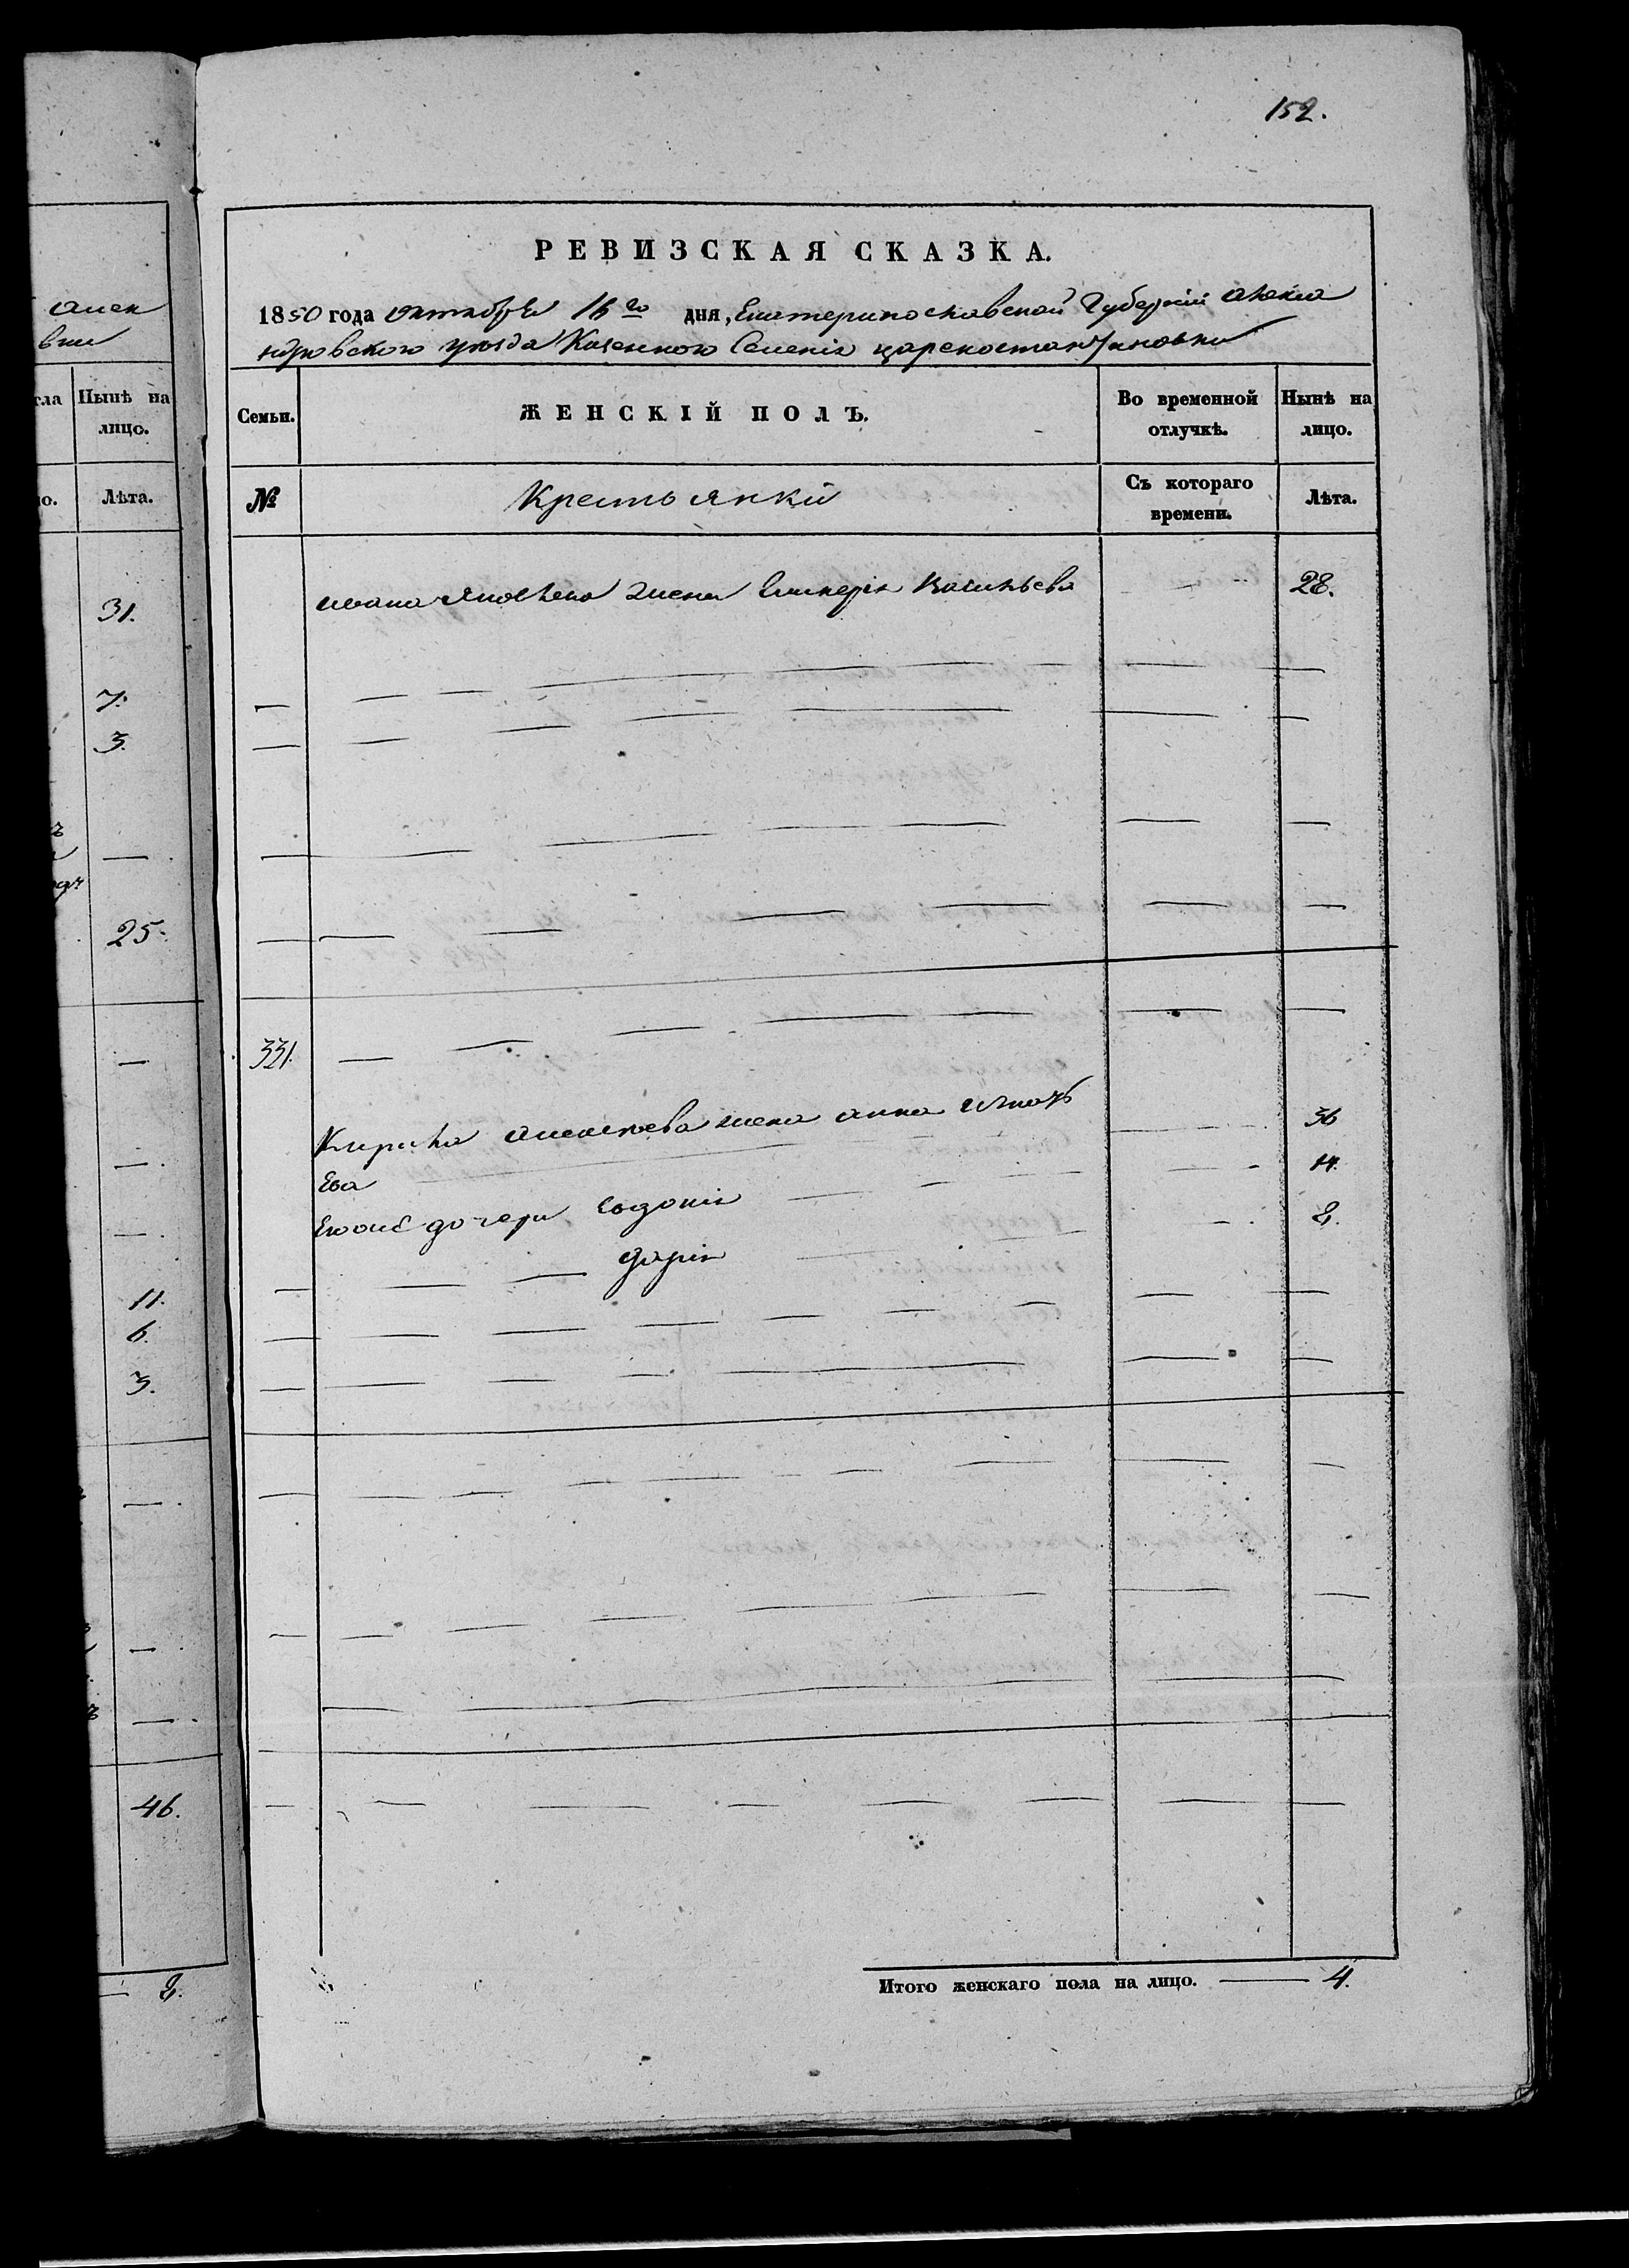 152.
РЕВИЗСКАЯ СКАЗКА.
1850 года октября 16го дня, Екатеринославской Губернии Алекса
ндровского уезда Казенного Селения Цареконстантиновки
Семьи.
ЖЕНСКІЙ ПОЛЪ.
Во временной отлучкѣ.
Нынѣ на лицо.
№
Крестьянки
Съ котораго времени.
Лѣта.
Ивана жена Васильева 28.
331.
Кирила Алексеева жена Анна Игнать 36
Ева 14.
Его дочери Евдокия 8.
Дария
Итого женскаго пола на лицо. 4.
Нынѣ на лицо.
Лѣта.
31.
7.
3.
25.
11.
6.
3.
46.
8.